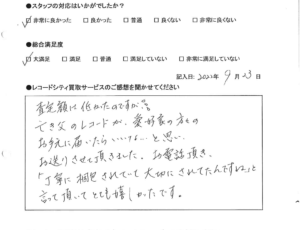 ●スタッフの対応はいかがでしたか？
☑非常に良かった □良かった □普通 □良くない □非常に良くない
●総合満足度
☑大満足 □満足 □普通 □満足していない □非常に満足していない
記入日: 2023年 9月23日
●レコードシティ買取サービスのご感想を聞かせてください
査定額は低かったのですが、
亡き父のレコードが、愛好家の方の
お手元に届いたらいいな…と思い
お送りさせて頂きました。お電話頂き、
「丁寧に梱包されていて大切にされてたんですね。」と
言って頂いてとても嬉しかったです。